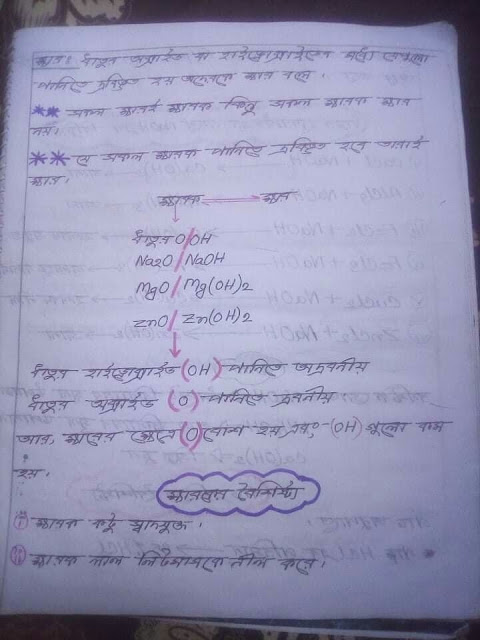 ক্ষার: ধাতুর অক্সাইড বা হাইড্রোক্সাইডের মধ্যে যেগুলো
পানিতে দ্রবীভূত হয় তাদেরকে ক্ষার বলে।
** সকল ক্ষারই ক্ষারক কিন্তু সকল ক্ষারক ক্ষার
নয়।
** যে সকল ক্ষারক পানিতে দ্রবীভূত হবে তারাই
ক্ষার।
ক্ষারক ক্ষার
ধাতুর O/OH
Na2O / NaOH
MgO / Mg(OH)2
ZnO / Zn(OH)2
ধাতুর হাইড্রোক্সাইড (OH) পানিতে অদ্রবনীয়
ধাতুর অক্সাইড (O) পানিতে দ্রবনীয়
আর, ক্ষারের ক্ষেত্রে (O) বেশি হয় এবং (OH) গুলো কম
হয়।
ক্ষারকের বৈশিষ্ট্য
i) ক্ষারক কটু স্বাদযুক্ত।
ii) ক্ষারক লাল লিটমাসকে নীল করে।